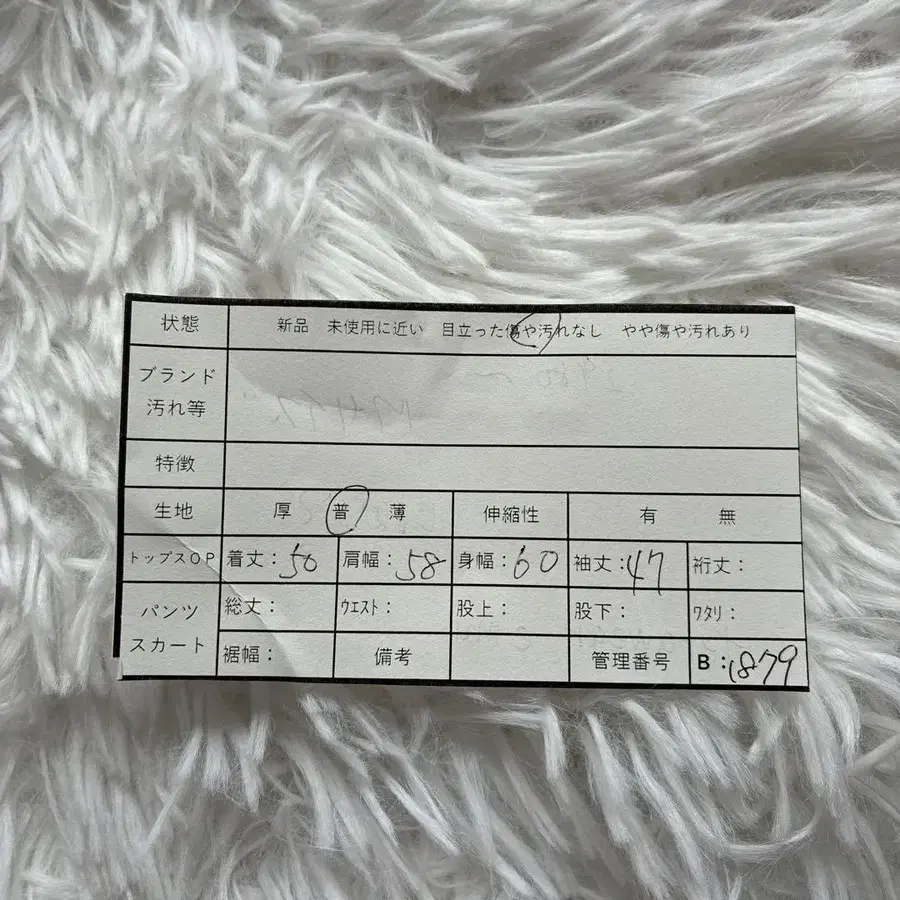 状態 新品 未使用に近い 目立った傷や汚れなし やや傷や汚れあり
ブランド
汚れ等
特徴
生地 厚 普 薄 伸縮性 有 無
トップスOP 着丈:50 肩幅:58 身幅:60 袖丈:47 裄丈:
パンツ
スカート
総丈: ウエスト: 股上: 股下: ワタリ:
裾幅: 備考 管理番号 B:1879